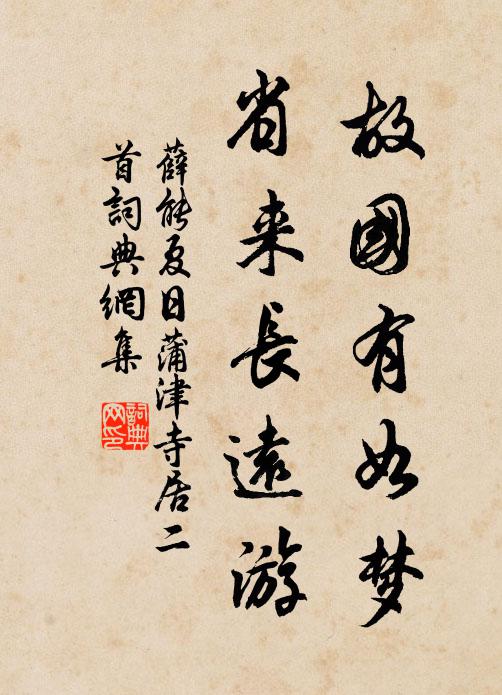 故國有如梦
省来長遠游
薛能夏日蒲津寺居二
首詞典網集
詞典
网印